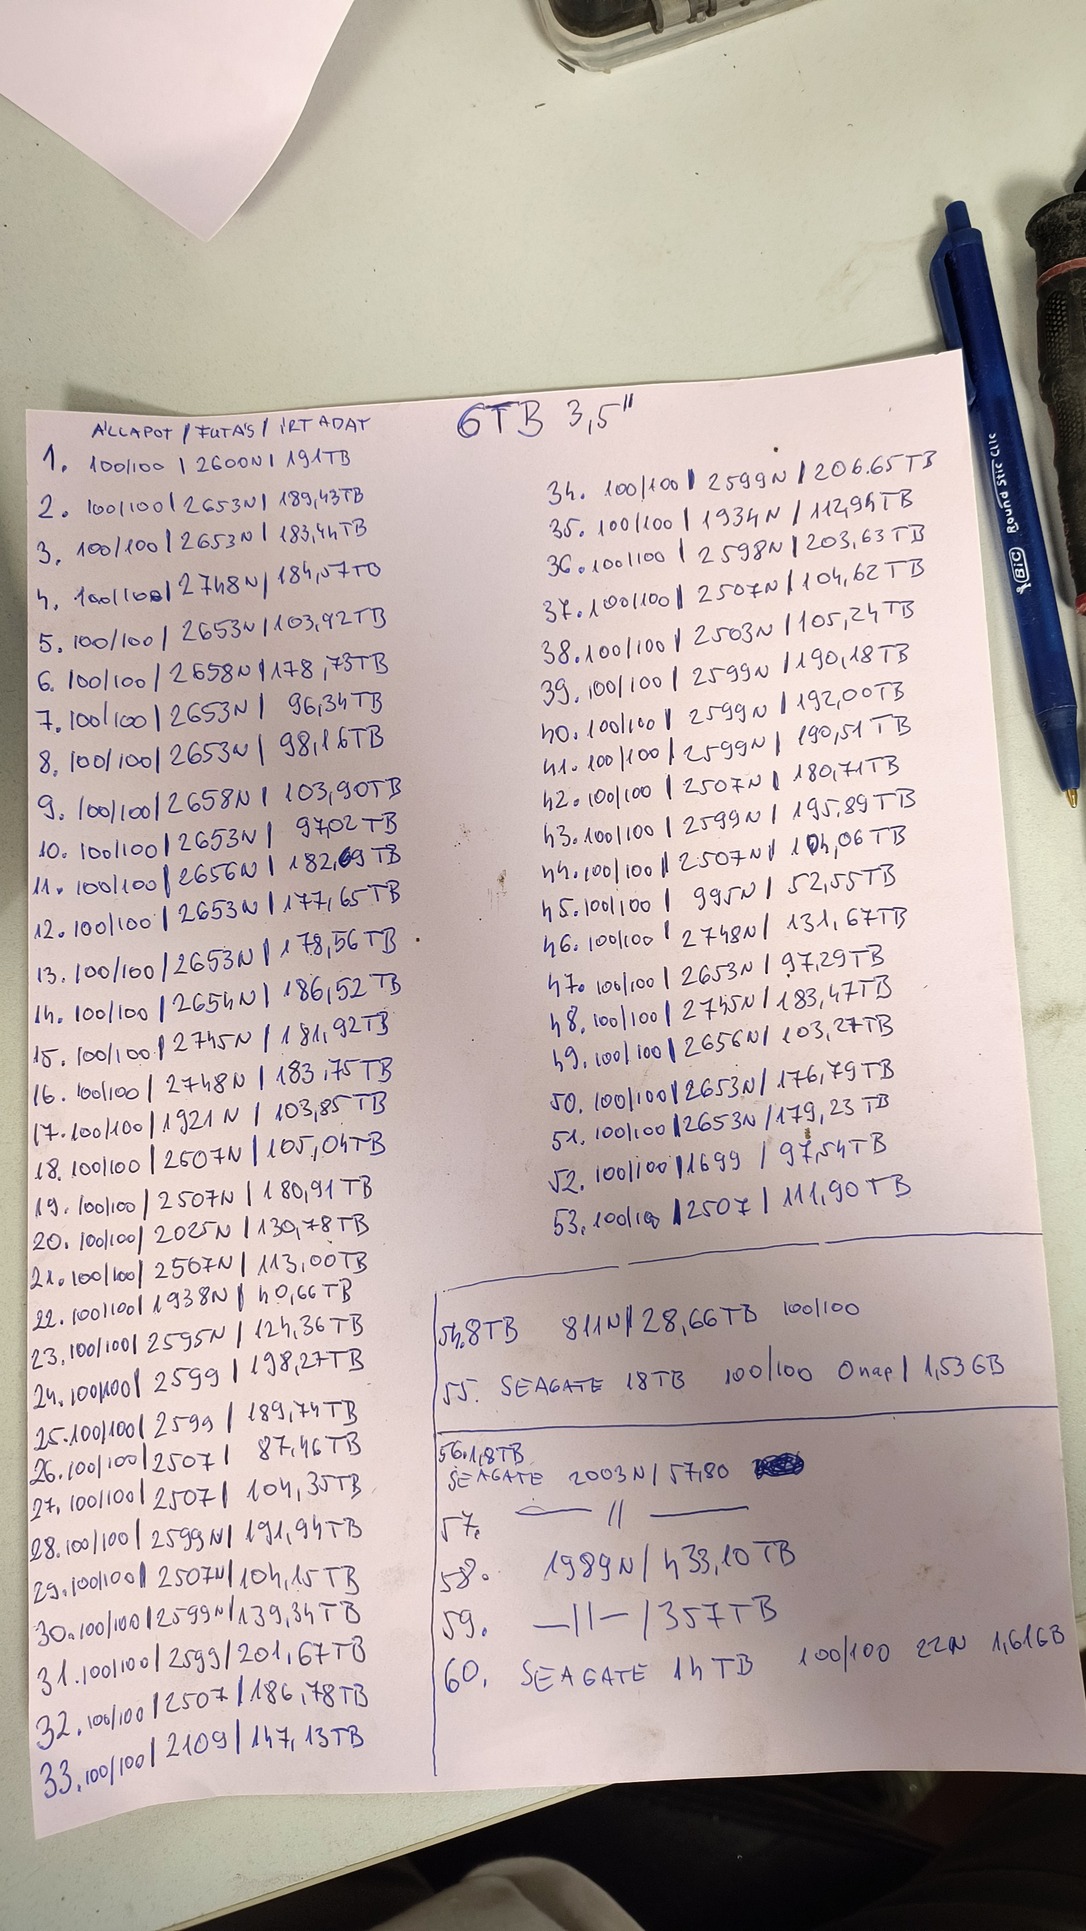 6TB 3,5"
ÁLLAPOT / FUTÁS / ÍRT ADAT
1. 100/100 | 2600N | 191TB
2. 100/100 | 2653N | 189,43TB
3. 100/100 | 2653N | 183,44TB
4. 100/100 | 2748N | 184,57TB
5. 100/100 | 2653N | 103,92TB
6. 100/100 | 2658N | 178,73TB
7. 100/100 | 2653N | 96,34TB
8. 100/100 | 2653N | 98,16TB
9. 100/100 | 2658N | 103,90TB
10. 100/100 | 2653N | 97,02TB
11. 100/100 | 2656N | 182,69TB
12. 100/100 | 2653N | 177,65TB
13. 100/100 | 2653N | 178,56TB
14. 100/100 | 2654N | 186,52TB
15. 100/100 | 2745N | 181,92TB
16. 100/100 | 2748N | 183,75TB
17. 100/100 | 1921N | 103,85TB
18. 100/100 | 2507N | 105,04TB
19. 100/100 | 2507N | 180,91TB
20. 100/100 | 2025N | 130,78TB
21. 100/100 | 2507N | 113,00TB
22. 100/100 | 1938N | 40,66TB
23. 100/100 | 2595N | 124,36TB
24. 100/100 | 2599 | 198,27TB
25. 100/100 | 2599 | 189,74TB
26. 100/100 | 2507 | 87,46TB
27. 100/100 | 2507 | 104,35TB
28. 100/100 | 2599N | 191,94TB
29. 100/100 | 2507N | 104,15TB
30. 100/100 | 2599N | 139,34TB
31. 100/100 | 2599 | 201,67TB
32. 100/100 | 2507 | 186,78TB
33. 100/100 | 2109 | 147,13TB
34. 100/100 | 2599N | 206.65TB
35. 100/100 | 1934N | 112,94TB
36. 100/100 | 2598N | 203,63TB
37. 100/100 | 2507N | 104,62TB
38. 100/100 | 2503N | 105,24TB
39. 100/100 | 2599N | 190,18TB
40. 100/100 | 2599N | 192,00TB
41. 100/100 | 2599N | 190,51TB
42. 100/100 | 2507N | 180,71TB
43. 100/100 | 2599N | 195,89TB
44. 100/100 | 2507N | 104,06TB
45. 100/100 | 995N | 52,55TB
46. 100/100 | 2748N | 131,67TB
47. 100/100 | 2653N | 97,29TB
48. 100/100 | 2745N | 183,47TB
49. 100/100 | 2656N | 103,27TB
50. 100/100 | 2653N | 176,79TB
51. 100/100 | 2653N | 179,23TB
52. 100/100 | 1699 | 97,54TB
53. 100/100 | 2507 | 111,90TB
54. 8TB 811N | 28,66TB 100/100
55. SEAGATE 18TB 100/100 0nap | 1,53GB
56. 1,8TB
SEAGATE 2003N / 57,80
57. —— // ——
58. 1989N / 433,10TB
59. —//— / 357TB
60. SEAGATE 14TB 100/100 22N 1,61GB
BIC Round Stic Clic